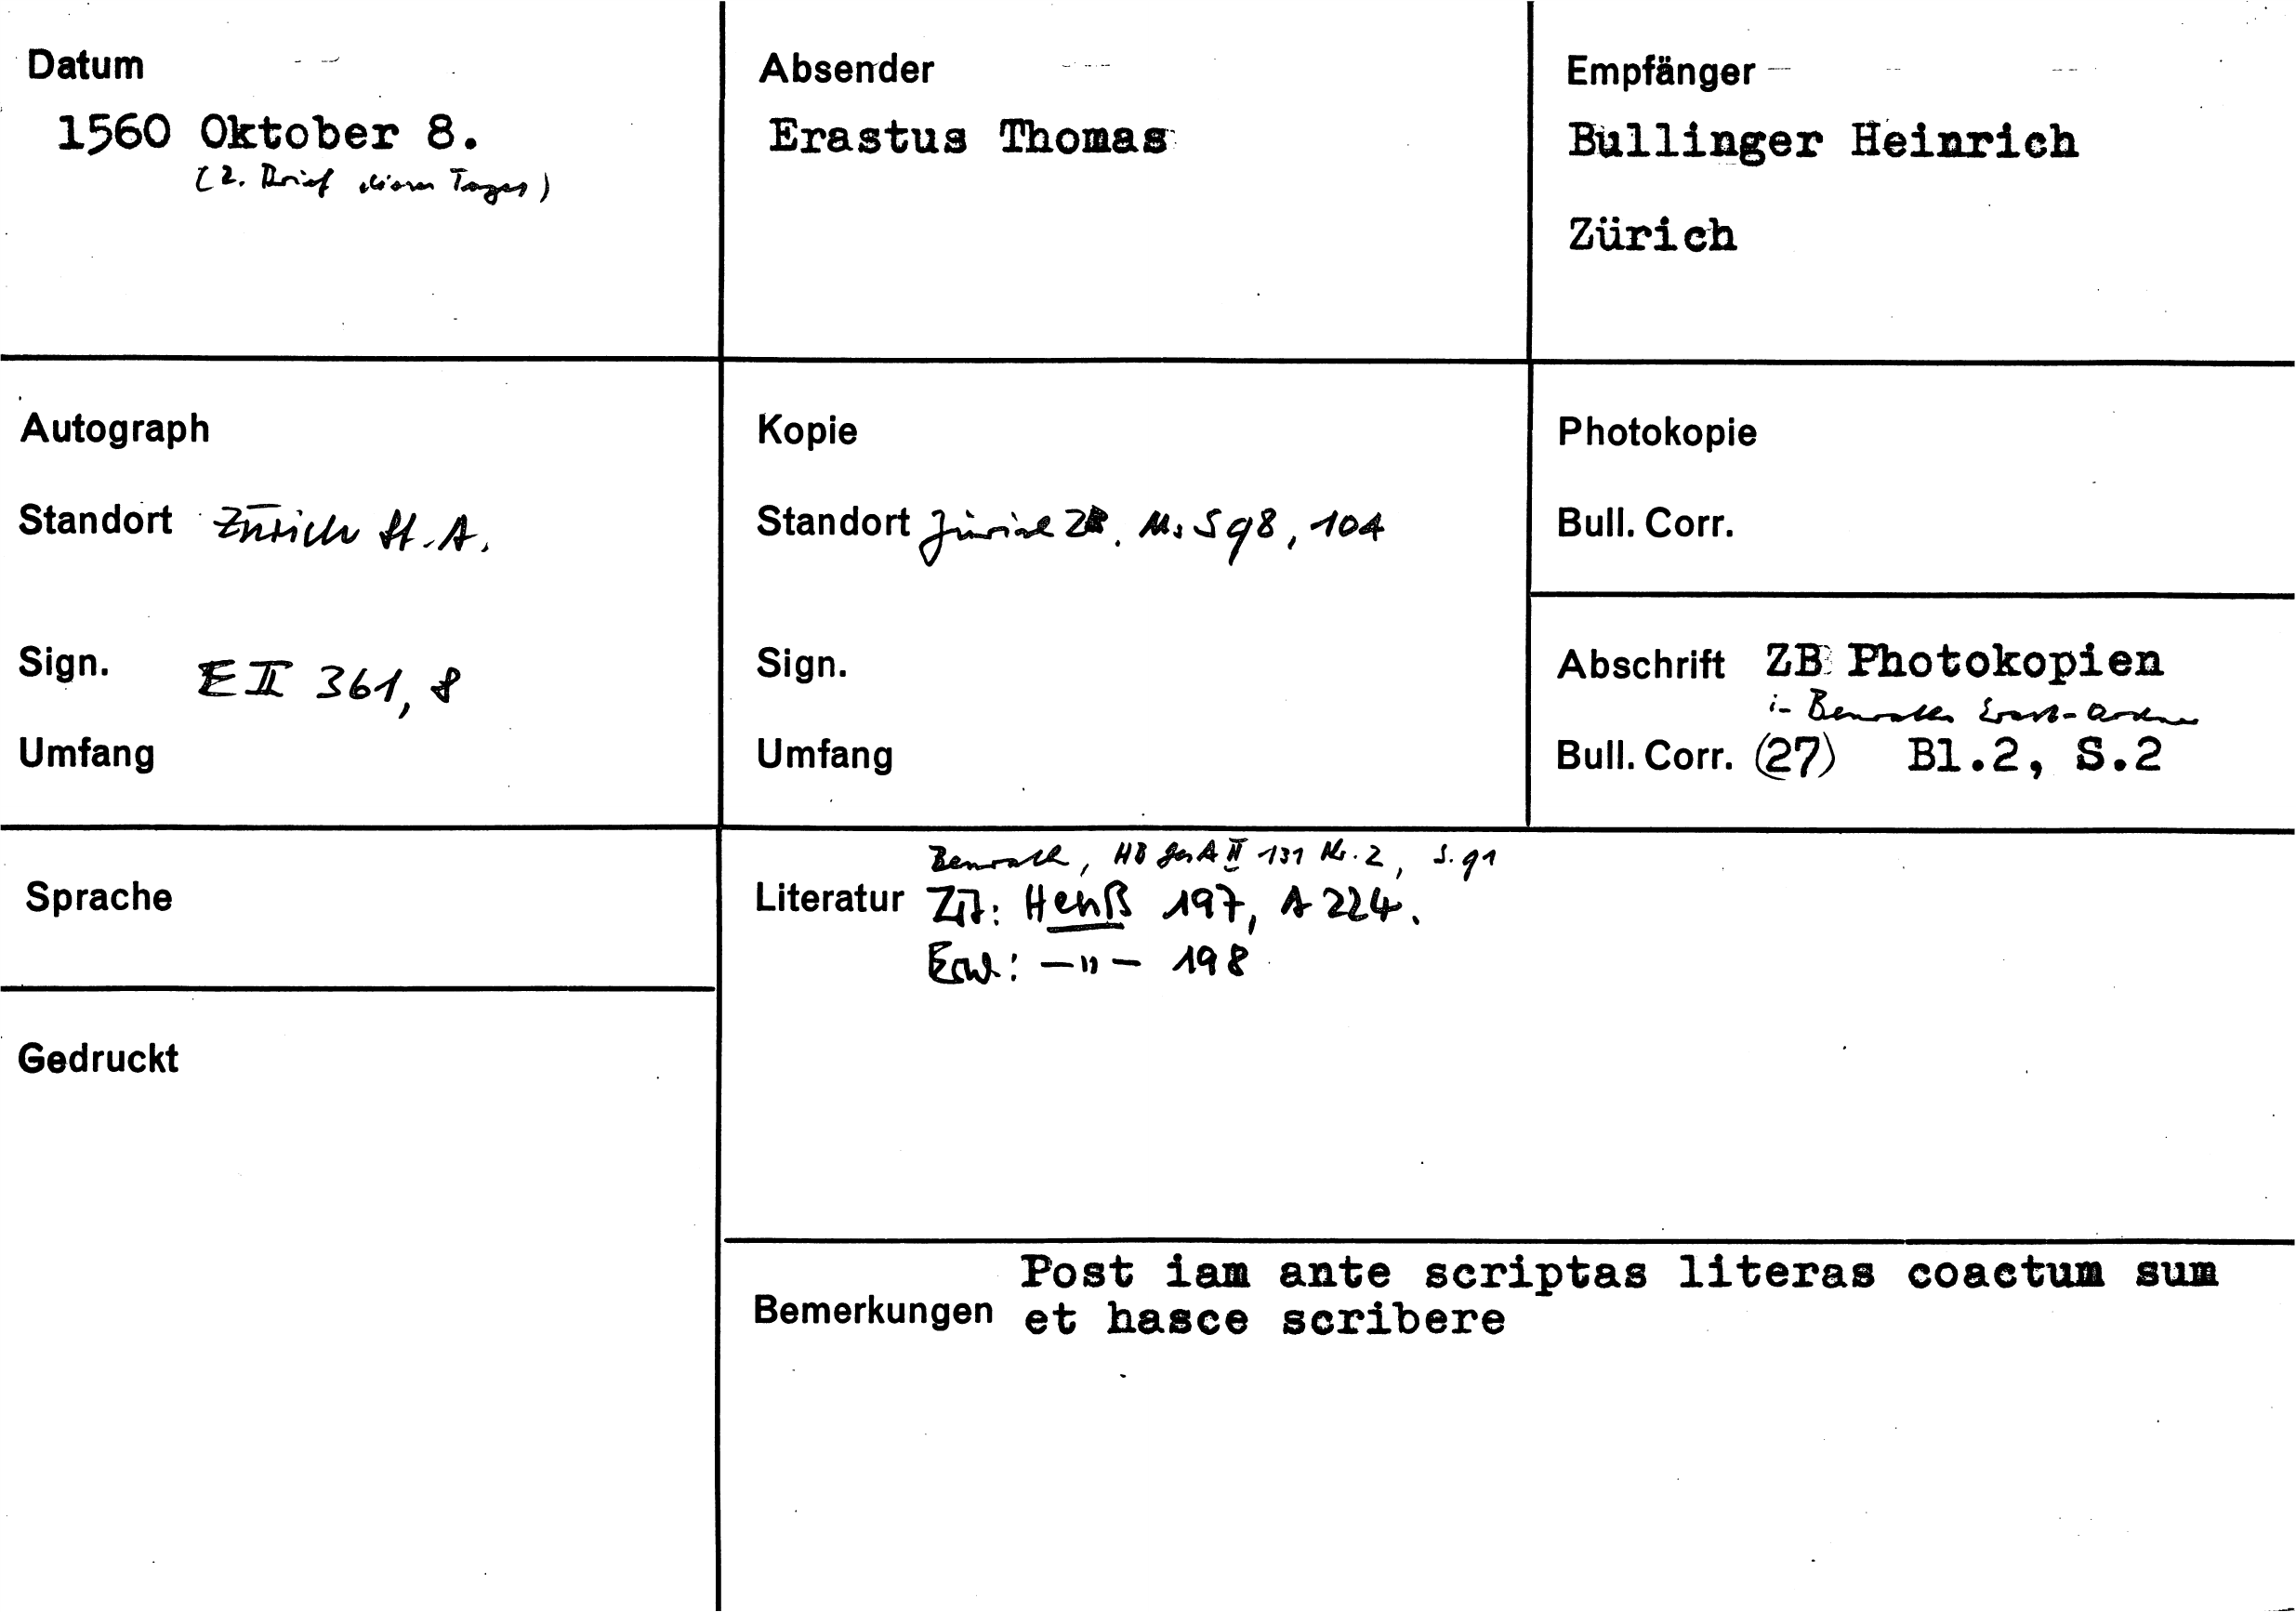 Datum
1560 Oktober 8.
(2. Brief dieses Tages)
Absender
Erastus Thomas
Empfänger
Bullinger Heinrich
Zürich
Autograph
Standort Zürich St.A.
Sign. E II 361, 8
Umfang
Kopie
Standort Zürich ZB. Ms S 98, 104
Sign.
Umfang
Photokopie
Bull. Corr.
Abschrift ZB Photokopien
Bull. Corr. (27) Bl.2, S.2
Sprache
Gedruckt
Benrath, HB II 131 Nr. 2, S. 91
Literatur Zit: Henß 197, A 224.
Erw: —"— 198
Bemerkungen Post iam ante scriptas literas coactum sum
et hasce scribere